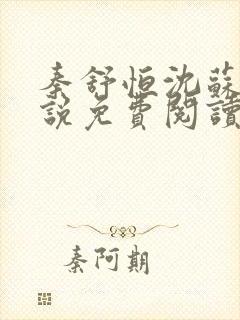 秦舒恒沈蘇
説免費閱讀
秦阿期